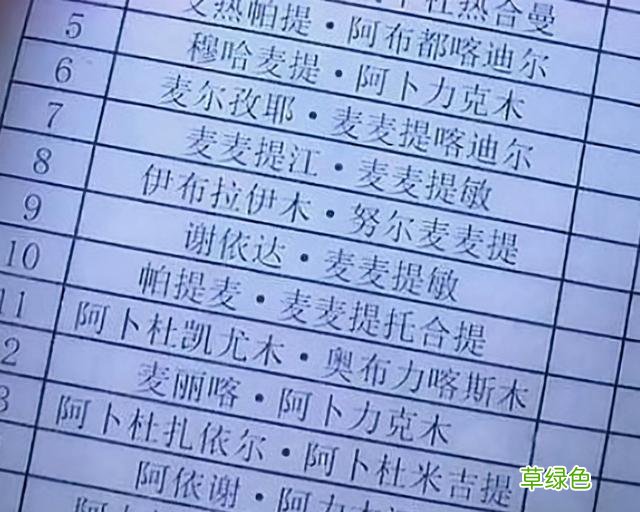 杜热合曼
5 艾热帕提·阿布都喀迪尔
6 穆哈麦提·阿卜力克木
7 麦尔孜耶·麦麦提喀迪尔
8 麦麦提江·麦麦提敏
9 伊布拉伊木·努尔麦麦提
10 谢依达·麦麦提敏
11 帕提麦·麦麦提托合提
2 阿卜杜凯尤木·奥布力喀斯木
3 麦丽喀·阿卜力克木
阿卜杜扎依尔·阿卜杜米吉提
阿依谢·阿力
草绿色